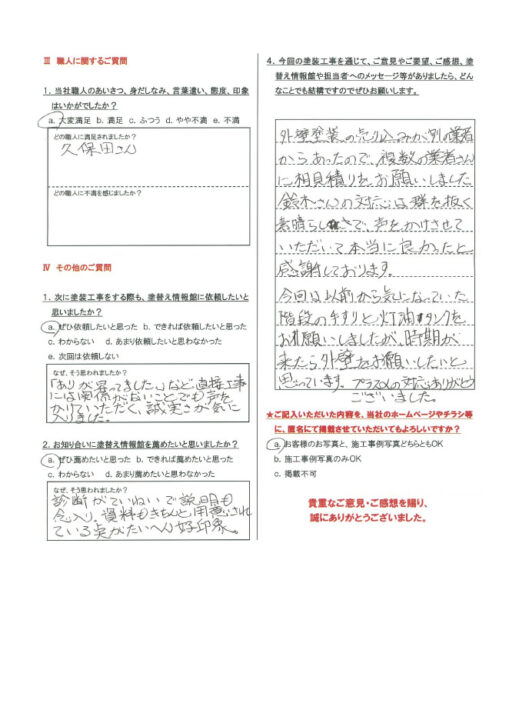 Ⅲ 職人に関するご質問
1. 当社職人のあいさつ、身だしなみ、言葉遣い、態度、印象
はいかがでしたか？
a. 大変満足 b. 満足 c. ふつう d. やや不満 e. 不満
どの職人に満足されましたか？
久保田さん
どの職人に不満を感じましたか？
Ⅳ その他のご質問
1. 次に塗装工事をする際も、塗替え情報館に依頼したいと
思いましたか？
a. ぜひ依頼したいと思った b. できれば依頼したいと思った
c. わからない d. あまり依頼したいと思わなかった
e. 次回は依頼しない
なぜ、そう思われましたか？
「ありが寄ってきました」など直接工事
には関係がないことでも声を
かけていただく、誠実さが気に
入りました。
2. お知り合いに塗替え情報館を薦めたいと思いましたか？
a. ぜひ薦めたいと思った b. できれば薦めたいと思った
c. わからない d. あまり薦めたいと思わなかった
なぜ、そう思われましたか？
診断がていねいで説明も
念入り。資料もきちんと用意され
ている実がたいへん好印象。
4. 今回の塗装工事を通じて、ご意見やご要望、ご感想、塗
替え情報館や担当者へのメッセージ等がありましたら、どん
なことでも結構ですのでぜひお願いします。
外壁塗装の売り込みが別の業者
からあったので、複数の業者さん
に相見積りをお願いしました
鈴木さんの対応は群を抜く
素晴らしさで、声をかけさせて
いただいて本当に良かったと
感謝しております。
今回は以前から気になっていた
階段の手すりと灯油タンクを
お願いしましたが、時期が
来たら外壁もお願いしたいと
思っています。プラスαの対応ありがとう
ございました。
★ご記入いただいた内容を、当社のホームページやチラシ等
に、匿名にて掲載させていただいてもよろしいですか？
a. お客様のお写真と、施工事例写真どちらともOK
b. 施工事例写真のみOK
c. 掲載不可
貴重なご意見・ご感想を賜り、
誠にありがとうございました。